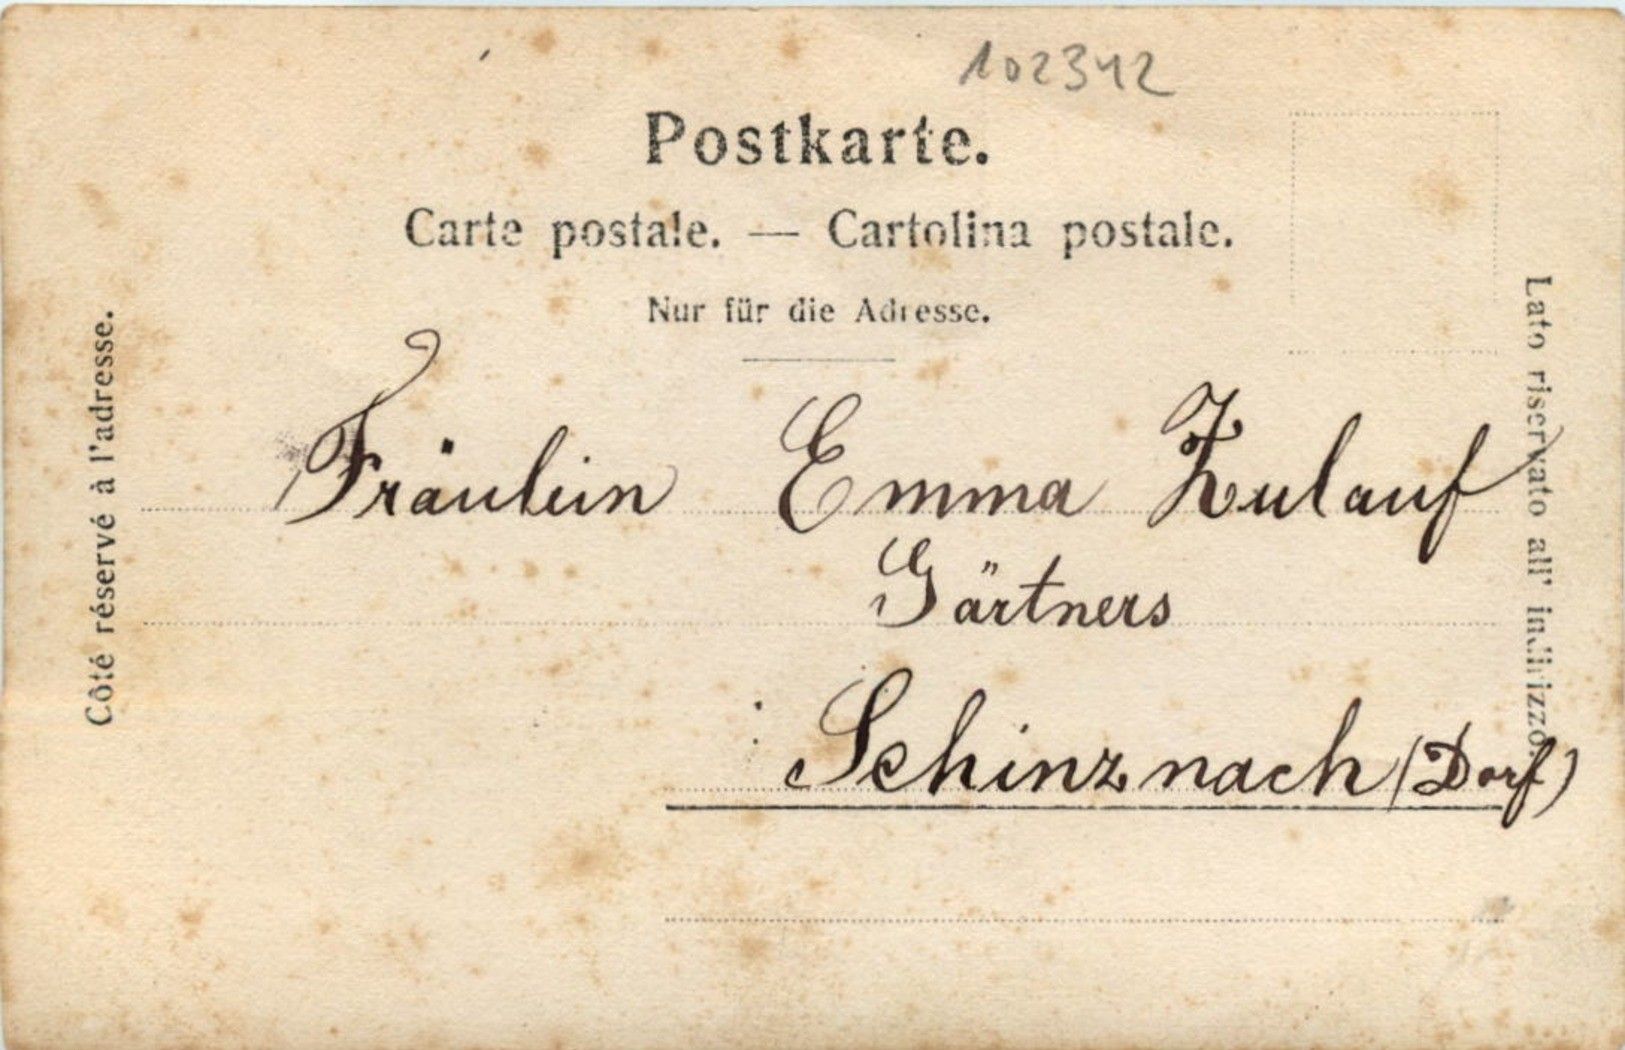 102342
Postkarte.
Carte postale. — Cartolina postale.
Nur für die Adresse.
Côté réservé à l'adresse.
Lato riservato all' indirizzo.
Fräulein Emma Zulauf
Gärtners
Schinznach (Dorf)